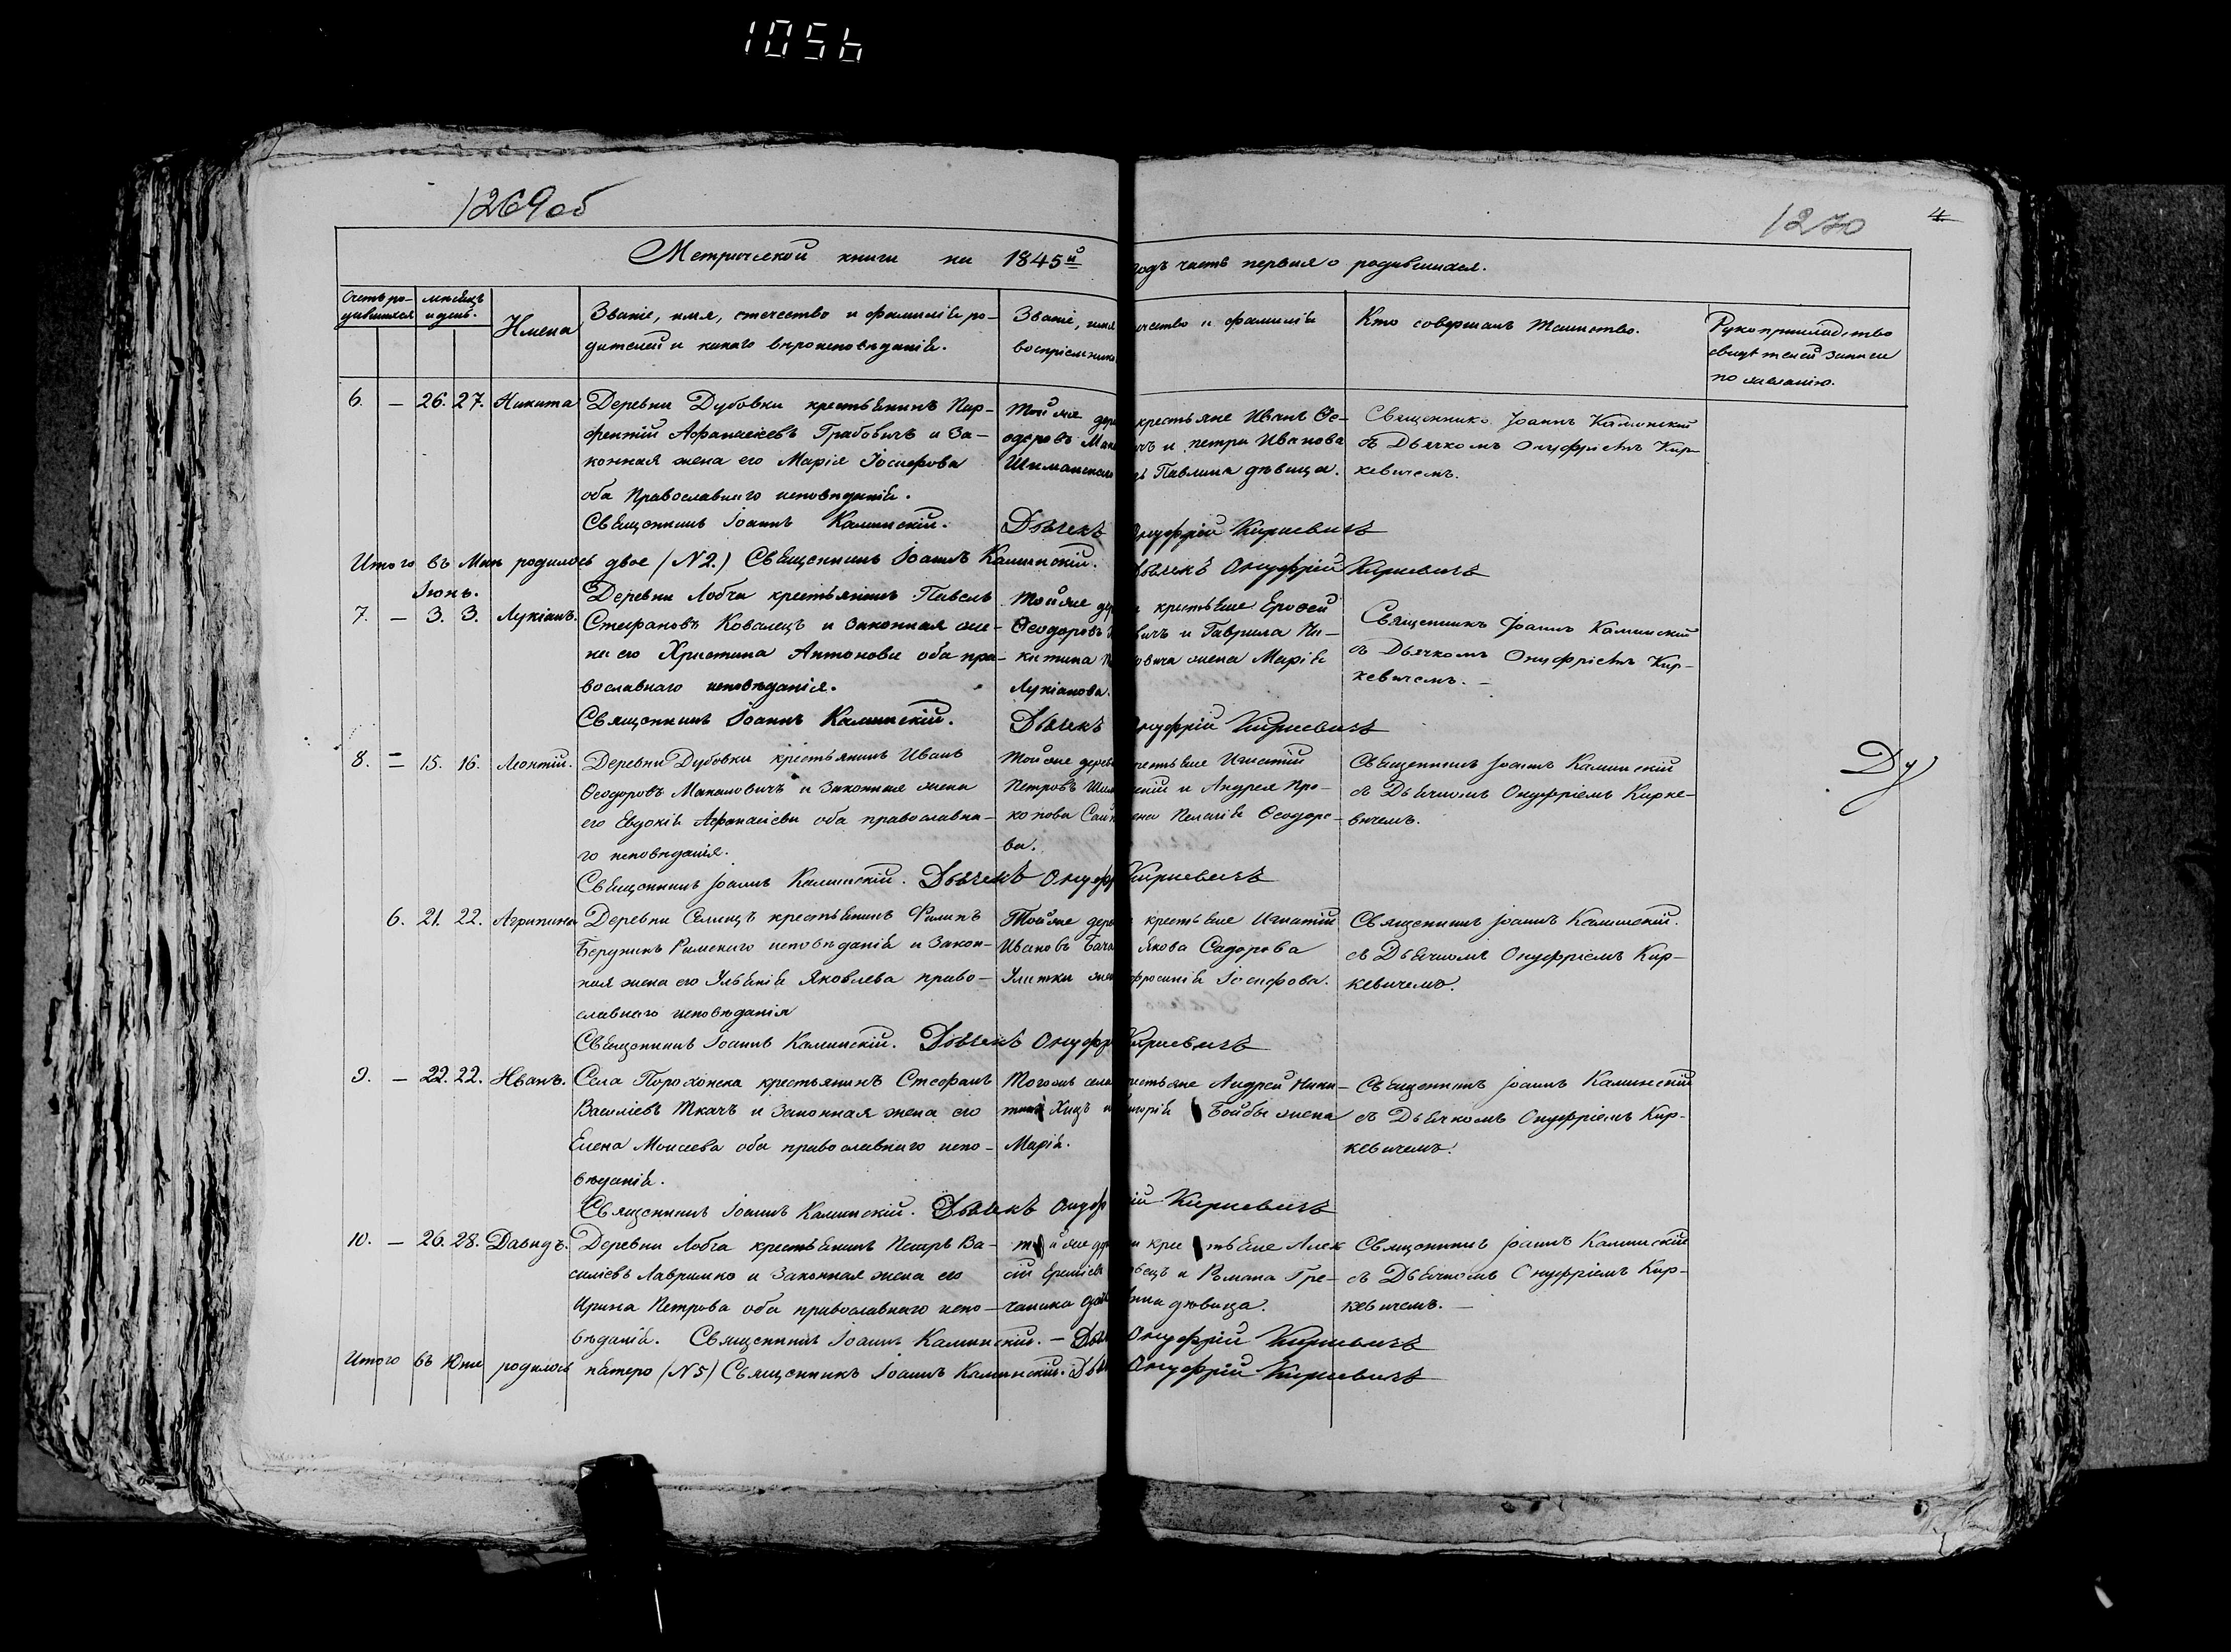 1056
1269об
1270
4
Метрической книги на 1845й годъ часть первая о родившихся.
Счетъ ро-
дившихся
мѣсяцъ
и день.
Имена
Званіе, имя, отечество и фамилія ро-
дителей и какого вѣроисповѣданія.
Званіе, имя отечество и фамилія
воспріемников
Кто совершалъ таинство.
Рукоприкладство
свидѣтелей записи
по желанію.
6. — 26. 27. Никита
Деревни Дубовки крестьянинъ Пар-
фентій Афанасіевъ Грабовичъ и за-
конная жена его Марія Іосифова
оба Православнаго исповѣданія.
Священникъ Іоаннъ Калинскій.
Той же дер крестьяне Иванъ Ѳе-
одоровъ Мака ичъ и петра Иванова
Шиманскаго Павлина дѣвица.
Дьячекъ Онуфрій Киркевичъ
Священникъ Іоаннъ Калинскій
съ Дьячкомъ Онуфріемъ Кир-
кевичемъ.
Итого въ Маѣ родилось двое (N 2.) Священникъ Іоаннъ Калинскій. Дьячекъ Онуфрій Киркевичъ
Іюнь.
7. — 3. 3. Лукіанъ.
Деревни Лобча крестьянинъ Павелъ
Стефановъ Ковалецъ и законная же-
на его Христина Антонова оба пра-
вославнаго исповѣданія.
Священникъ Іоаннъ Калинскій.
Той же дер крестьяне Ерофей
Ѳеодоровъ вичъ и Гаврила Ни-
китина овича жена Марія
Лукіанова.
Дьячекъ Онуфрій Киркевичъ
Священникъ Іоаннъ Калинскій
съ Дьячкомъ Онуфріемъ Кир-
кевичемъ. —
8. = 15. 16. Леонтій.
Деревни Дубовки крестьянинъ Иванъ
Ѳеодоровъ Макаловичъ и законная жена
его Евдокія Афанасіева оба православна-
го исповѣданія.
Священникъ Іоаннъ Калинскій. Дьячекъ Онуфр Киркевичъ
Той же дерев крестьяне Игнатій
Петровъ Шим скій и Андрея Про-
копова жена Пелагія Ѳеодоро-
ва.
Священникъ Іоаннъ Калинскій
съ Дьячкомъ Онуфріемъ Кирке-
вичемъ.
Ду
6. 21. 22. Агрипина
Деревни Селищъ крестьянинъ Филипъ
Берунинъ Римскаго исповѣданія и Закон-
ная жена его Ульянія Яковлева право-
славнаго исповѣданія
Священникъ Іоаннъ Калинскій. Дьячекъ Онуфр Киркевичъ
Той же дерев крестьяне Игнатій
Ивановъ Якова Садорова
Улитки жен фросинія Іосифова.
Священникъ Іоаннъ Калинскій.
съ Дьячкомъ Онуфріемъ Кир-
кевичемъ.
9. — 22. 22. Иванъ.
Села Порохонска крестьянинъ Стефанъ
Василіевъ Ткачъ и законная жена его
Елена Моисеева оба православнаго испо-
вѣданія.
Священникъ Іоаннъ Калинскій. Дьячекъ Онуфрій Киркевичъ
Тогожъ села крестьяне Андрей Ники-
тинъ Хицъ и горія Бойбы жена
Марія.
Священникъ Іоаннъ Калинскій
съ Дьячкомъ Онуфріемъ Кир-
кевичемъ.
10. — 26. 28. Давидъ.
Деревни Лобча крестьянинъ Петръ Ва-
силіевъ Лавринко и законная жена его
Ирина Петрова оба православнаго испо-
вѣданія. Священникъ Іоаннъ Калинскій. — Дьяч Онуфрій Киркевичъ
той же дер крестьяне Алек
сій вецъ и Романа Гре-
дѣвица.
Священникъ Іоаннъ Калинскій
съ Дьячкомъ Онуфріемъ Кир-
кевичемъ. —
Итого въ Юнѣ родилось пятеро (N 5) Священникъ Іоаннъ Калинскій. Дьяч Онуфрій Киркевичъ